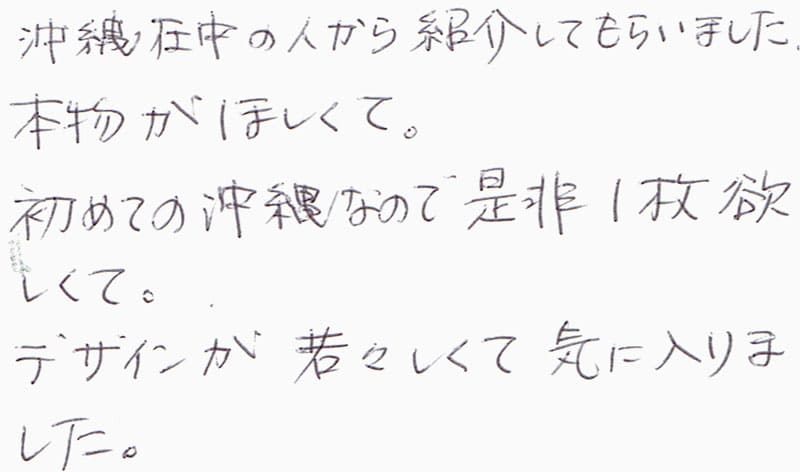 沖縄在中の人から紹介してもらいました.
本物がほしくて。
初めての沖縄なので是非1枚欲
しくて。
デザインが若々しくて気に入りま
した。